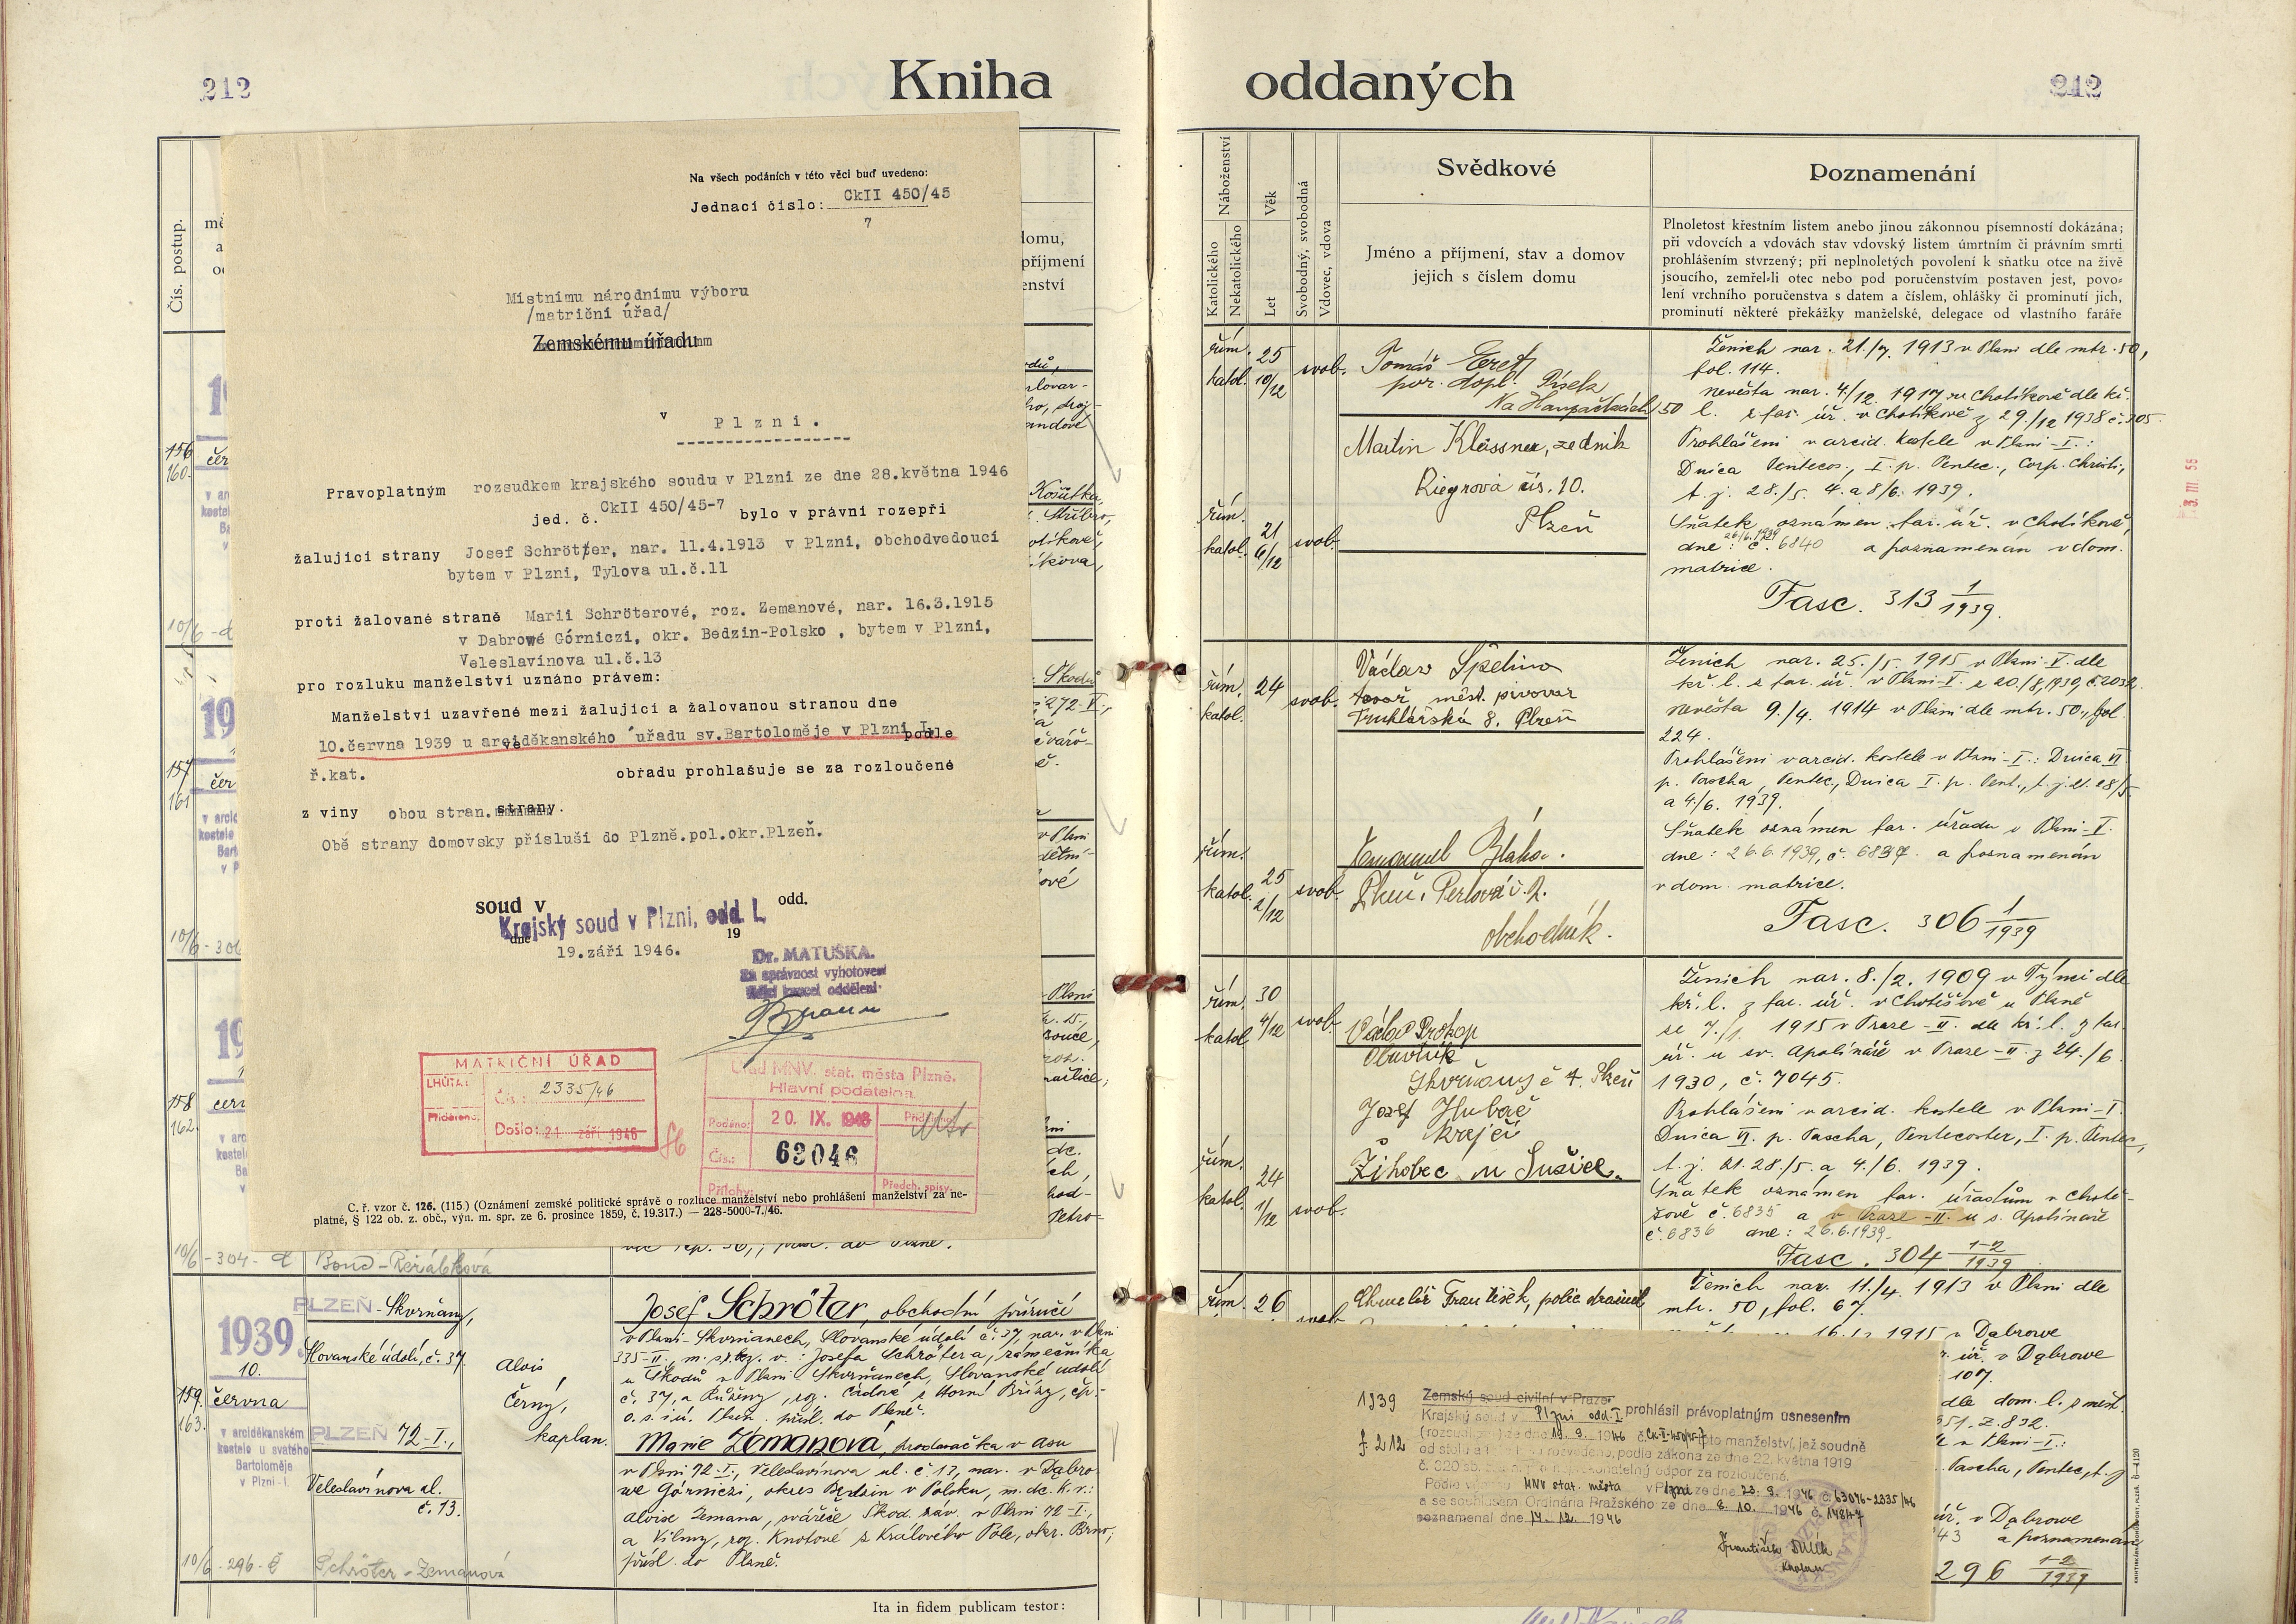 212
Kniha
oddaných
212
Čís. postup.
Na všech podáních v této věci buď uvedeno:
Jednací číslo: CkII 450/45
7
Místnímu národnímu výboru
/matriční úřad/
Zemskému úřadu
v
Plzni.
Pravoplatným rozsudkem krajského soudu v Plzni ze dne 28.května 1946
jed. č. CkII 450/45-7 bylo v právní rozepři
žalující strany Josef Schrötter, nar. 11.4.1913 v Plzni, obchodvedoucí
bytem v Plzni, Tylova ul.č.11
proti žalované straně Marii Schröterové, roz. Zemanové, nar. 16.3.1915
v Dabrowé Górniczi, okr. Bedzin-Polsko , bytem v Plzni,
Veleslavínova ul.č.13
pro rozluku manželství uznáno právem:
Manželství uzavřené mezi žalující a žalovanou stranou dne
10.června 1939 u arciděkanského úřadu sv.Bartoloměje v Plzni I. podle
ř.kat. obřadu prohlašuje se za rozloučené
z viny obou stran. strany.
Obě strany domovsky přísluší do Plzně.pol.okr.Plzeň.
soud v odd.
Krajský soud v Plzni, odd. I.
dne 19
19.září 1946.
Dr. MATUŠKA.
Za správnost vyhotovení
MATRIČNÍ ÚŘAD
LHŮTA:
Čís.: 2335/46
Přiděleno:
Došlo: 21 září 1946
Úřad MNV. stat. města Plzně.
Hlavní podatelna
Podáno: 20. IX. 1946
Čís.: 63046
Přílohy: Předch. spisy.
C. ř. vzor č. 126. (115.) (Oznámení zemské politické správě o rozluce manželství nebo prohlášení manželství za ne-
platné, § 122 ob. z. obč., výn. m. spr. ze 6. prosince 1859, č. 19.317.) — 228-5000-7./46.
156
160
157
161
158
162
10/6-304-
1939
10.
159. června
163.
v arciděkanském
kostele u svatého
Bartoloměje
v Plzni-I.
PLZEŇ-Skvrňany,
Slovanské údolí, č. 37
PLZEŇ 72-I.,
Veleslavínova ul.
č. 13.
Alois
Černý,
kaplan.
Josef Schröter, obchodní příručí
v Plzni-Skvrňanech, Slovanské údolí č. 37, nar. v Plzni
335-II., m. syn v.: Josefa Schrötera, zámečníka
u Škodů v Plzni Skvrňanech, Slovanské údolí
č. 37, a Růženy, roz. Cádové z Horní Břízy, čp.-
o. s. i. ú. Plzeň. přísl. do Plzně.
Marie Zemanová, prodavačka v Asu
v Plzni 72-I., Veleslavínova ul. č. 13, nar. v Dąbro-
we Górniczi, okres Będzin v Polsku, m. dc. k. v.:
Aloise Zemana, svářeče Škod. záv. v Plzni 72-I.,
a Vilmy, roz. Knotové z Králového Pole, okr. Brno;
přísl. do Plzně.
10/6-296-č Schröter-Zemanová
Ita in fidem publicam testor:
Náboženství
Katolického
Nekatolického
Věk
Let
Svobodný, svobodná
Vdovec, vdova
Svědkové
Jméno a příjmení, stav a domov
jejich s číslem domu
Poznamenání
Plnoletost křestním listem anebo jinou zákonnou písemností dokázána;
při vdovcích a vdovách stav vdovský listem úmrtním či právním smrti
prohlášením stvrzený; při neplnoletých povolení k sňatku otce na živě
jsoucího, zemřel-li otec nebo pod poručenstvím postaven jest, povo-
lení vrchního poručenstva s datem a číslem, ohlášky či prominutí jich,
prominutí některé překážky manželské, delegace od vlastního faráře
řím. katol. 25 10/12 svob.
Tomáš
por. dopl. Písek
Martin Klässner, zedník
Riegrova čís. 10.
Plzeň
řím. katol. 21 6/12 svob.
Ženich nar. 21./9. 1913 v Plzni dle mtr. 50,
fol. 114.
nevěsta nar. 4./12. 1917 v Chotíkově dle kř.
l. z far. úř. v Chotíkově z 29./12 1938 č. 305.
Prohlášeni v arcid. kostele v Plzni-I.:
Dnica Pentecos., I. p. Pentec., Corp. Christi,
t. j. 28./5. 4. a 8/6. 1939.
Sňatek oznámen far. úř. v Chotíkově,
dne: 26/6.1939 č. 6840 a poznamenán v dom.
matrice.
Fasc. 313 1/1939.
řím. katol. 24 svob.
Václav Špelina
tovař. měst. pivovar
Truhlářská 8. Plzeň
Emanuel Bláha.
Plzeň, Perlová č. 2.
obchodník.
řím. katol. 25 2/12 svob.
Ženich nar. 25./5. 1915 v Plzni-V. dle
kř. l. z far. úř. v Plzni-V. z 20./8.1939, č. 2032.
nevěsta 9./4. 1914 v Plzni dle mtr. 50., fol.
224.
Prohlášeni v arcid. kostele v Plzni-I.: Dnica VI
p. Pascha, Pentec., Dnica I. p. Pent., t. j. 21. 28/5
a 4./6. 1939.
Sňatek oznámen far. úřadu v Plzni-V.
dne: 26.6.1939, č. 6837. a poznamenán
v dom. matrice.
Fasc. 306 1/1939
řím. katol. 30 4/12 svob.
Václav Prokop
obuvník
Skvrňany č 4. Plzeň
Josef Hubač
krejčí
Žihobec u Sušice.
řím. katol. 24 1/12 svob.
Ženich nar. 8./2. 1909 v Týnci dle
kř. l. z far. úř. v Chotěšově u Plzně
se 7./1. 1915 v Praze-II. dle kř. l. z far.
úř. u sv. Apolináře v Praze-II. z 24./6
1930, č. 7045.
Prohlášeni v arcid. kostele v Plzni-I.
Dnica VI. p. Pascha, Pentecostes, I. p. Pentec.,
t. j. 21. 28./5. a 4./6. 1939.
Sňatek oznámen far. úřadům v Chotě-
šově č. 6835 a v Praze-II. u s. Apolináře
č. 6836 dne: 26.6.1939.
Fasc. 304 1-2/1939
řím. 26
Chmelíř František, polic. strážník
Ženich nar. 11./4. 1913 v Plzni dle
mtr. 50, fol. 67.
1915 v Dąbrowe
úř. v Dąbrowe
107.
dle dom. l. z měst.
851. Z. 832.
v Plzni-I.:
Pascha, Pentec, t. j.
úř. v Dąbrowe
43 a poznamenán
296 1-2/1939
1939
f. 212
Zemský soud civilní v Praze
Krajský soud v Plzni odd. I. prohlásil právoplatným usnesením
(rozsudkem) ze dne 19. 9. 1946 č. Ck-II-450/45-7 toto manželství, jež soudně
od stolu a lože rozvedeno, podle zákona ze dne 22. května 1919
č. 320 sb. z. a n. pro nepřekonatelný odpor za rozloučené.
Podle výnosu MNV stat. města v Plzni ze dne 23. 9. 1946 č. 63046-2335/46
a se souhlasem Ordinária Pražského ze dne 8. 10. 1946 č. 14847
poznamenal dne 14. 12. 1946
František
kaplan